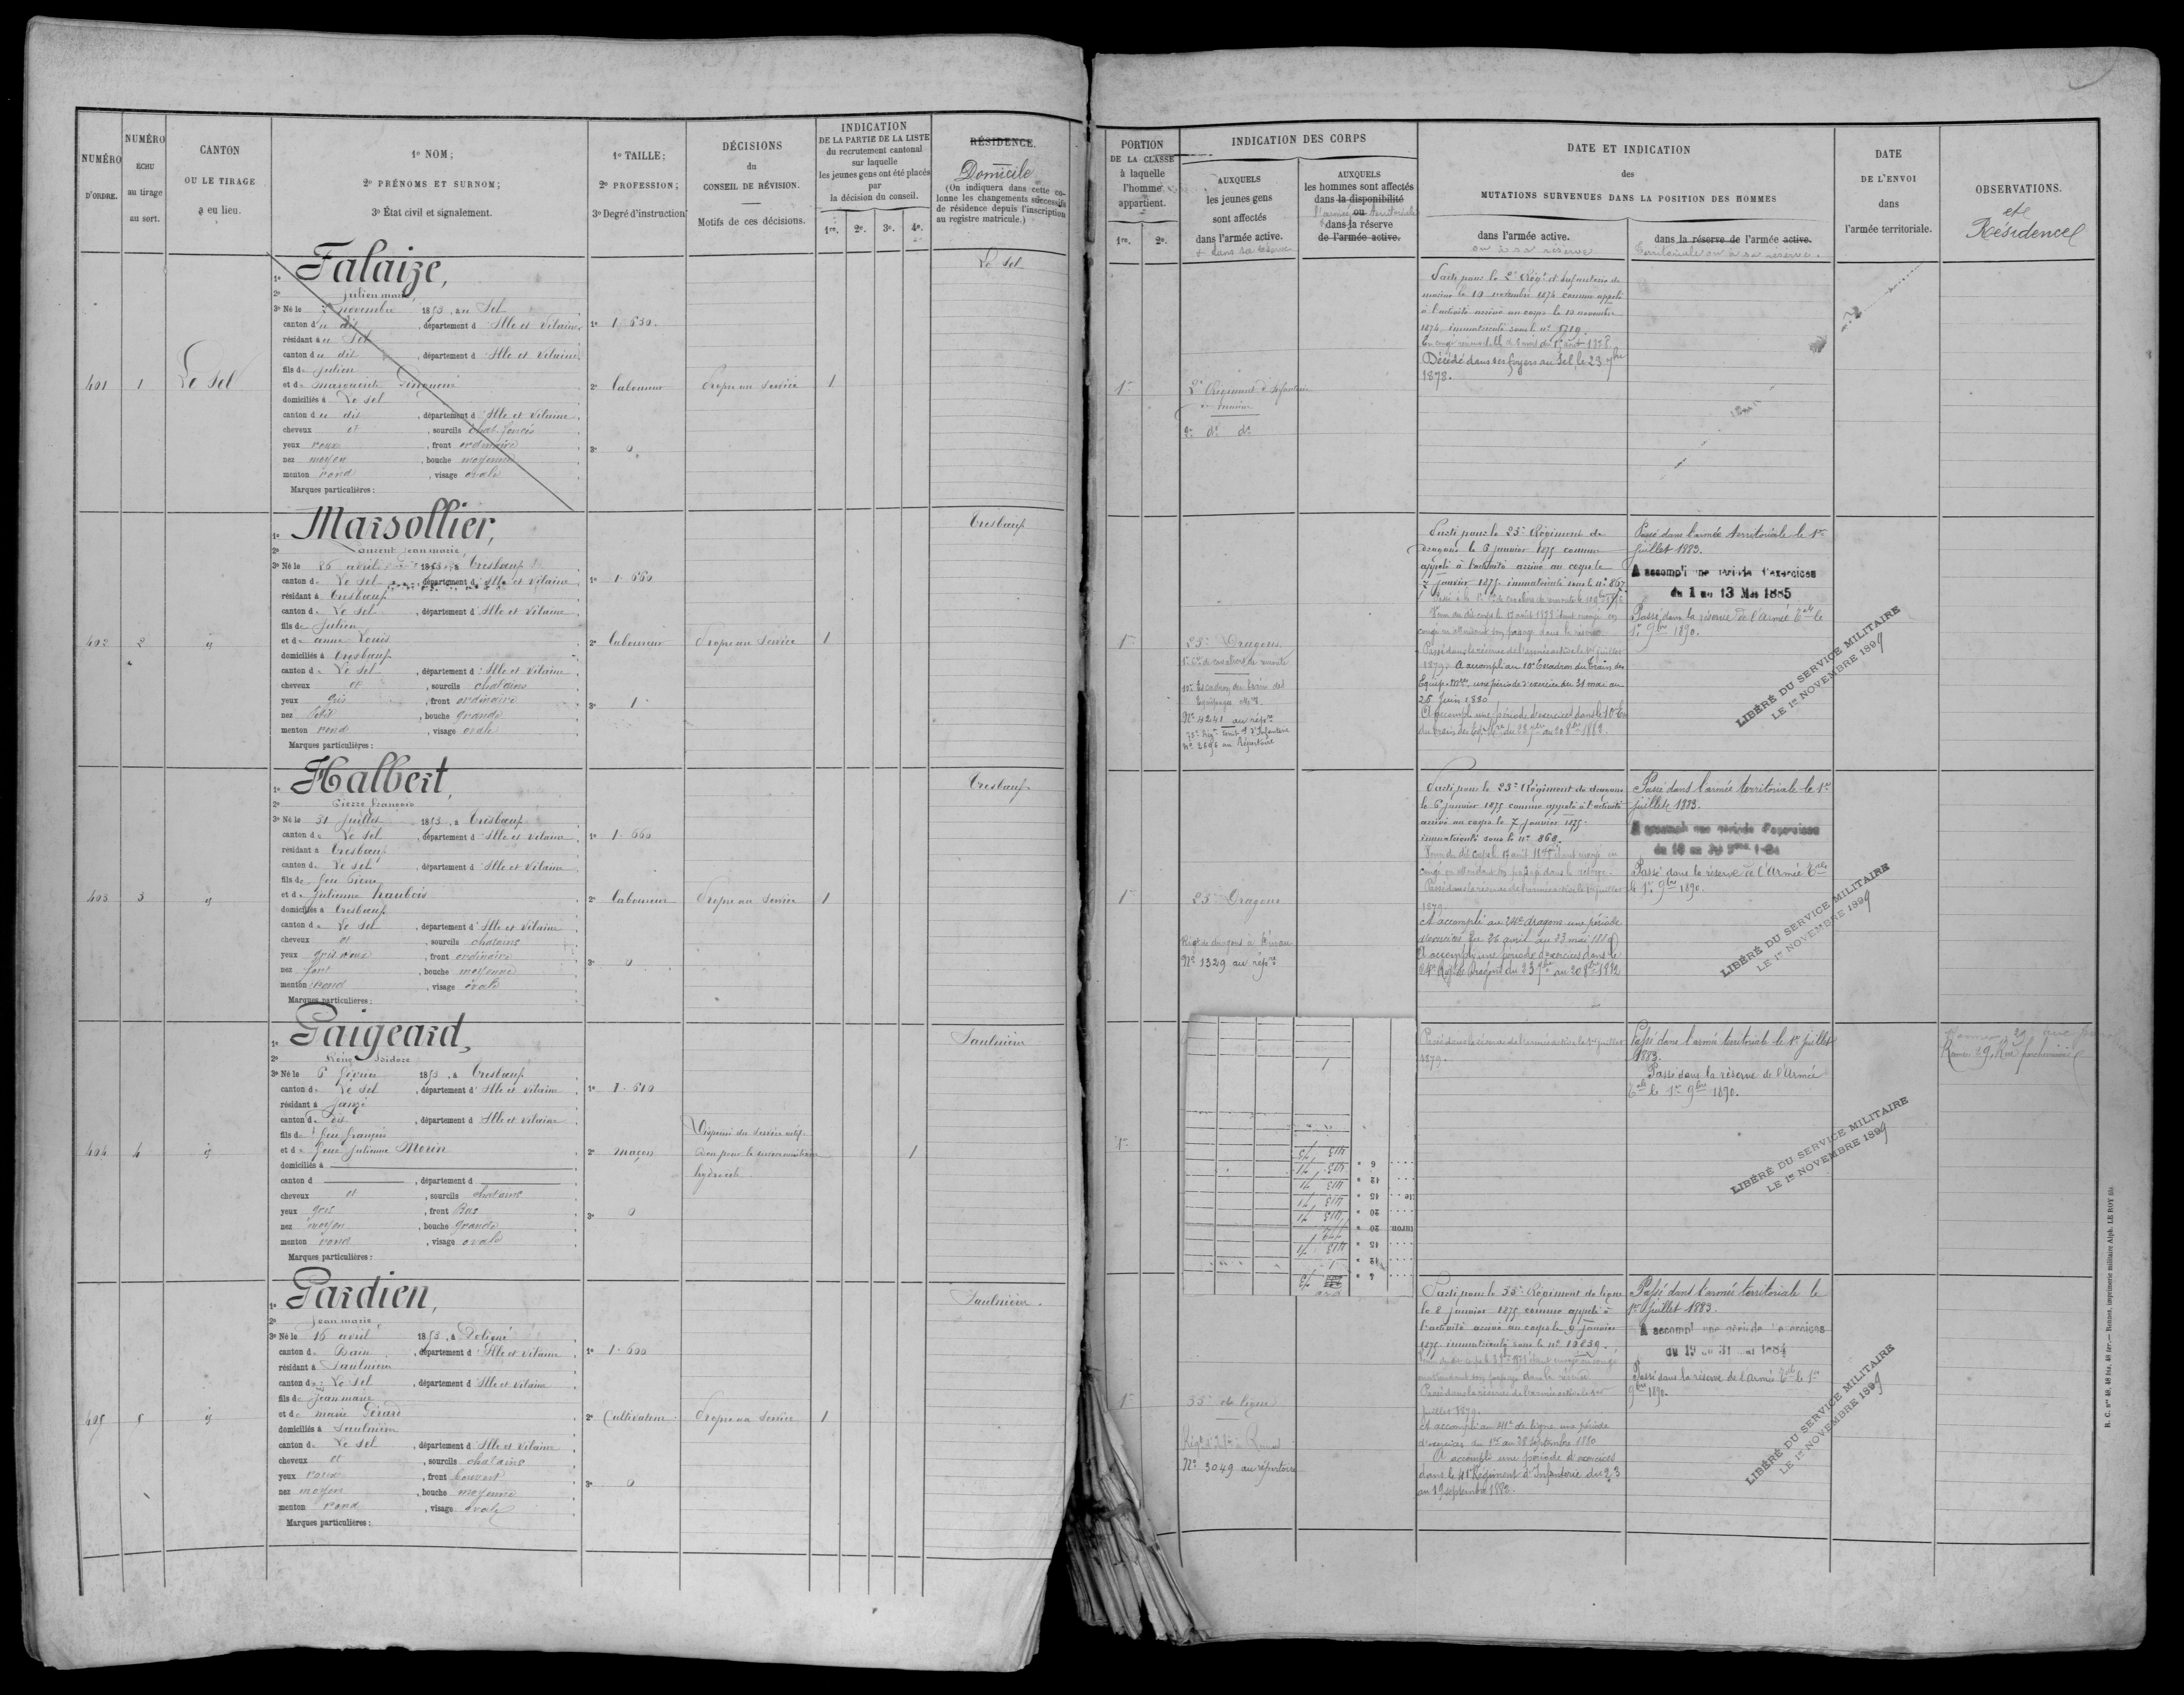 NUMÉRO
D'ORDRE.
NUMÉRO
ÉCHU
au tirage
au sort.
CANTON
OU LE TIRAGE
a eu lieu.
1º NOM;
2º PRÉNOMS ET SURNOM;
3º État civil et signalement.
1º TAILLE;
2º PROFESSION;
3º Degré d'instruction
DÉCISIONS
du
CONSEIL DE RÉVISION.
Motifs de ces décisions.
INDICATION
DE LA PARTIE DE LA LISTE
du recrutement cantonal
sur laquelle
les jeunes gens ont été placés
par
la décision du conseil.
1re. 2e. 3e. 4e.
RÉSIDENCE.
Domicile
(On indiquera dans cette co-
lonne les changements successifs
de résidence depuis l'inscription
au registre matricule.)
401
1
Le Sel
1º Falaize,
2º Julien marie
3º Né le novembre 1853, au Sel
canton du dit, département d'Ille et Vilaine
résidant au Sel
canton du dit, département d'Ille et Vilaine
fils de Julien
et de Marguerite
domiciliés à Le Sel
canton du dit, département d'Ille et Vilaine
cheveux et, sourcils chat. foncés
yeux roux, front ordinaire
nez moyen, bouche moyenne
menton rond, visage ovale
Marques particulières:
1º 1.650.
2º laboureur
3º 0
Propre au service
1
Le Sel
402
2
id
1º Marsollier,
2º Laurent Jean marie
3º Né le 26 avril 1853, à Tresbœuf
canton de Le Sel, département d'Ille et Vilaine
résidant à Tresbœuf
canton de Le Sel, département d'Ille et Vilaine
fils de Julien
et de anne Louis
domiciliés à Tresbœuf
canton de Le Sel, département d'Ille et Vilaine
cheveux et, sourcils chatains
yeux gris, front ordinaire
nez petit, bouche grande
menton rond, visage ovale
Marques particulières:
1º 1.660
2º laboureur
3º 1
Propre au service
1
Tresbœuf
403
3
id
1º Halbert,
2º Pierre françois
3º Né le 31 juillet 1853, à Tresbœuf
canton de Le Sel, département d'Ille et Vilaine
résidant à Tresbœuf
canton de Le Sel, département d'Ille et Vilaine
fils de feu Pierre
et de Julienne haubois
domiciliés à Tresbœuf
canton de Le Sel, département d'Ille et Vilaine
cheveux et, sourcils chatains
yeux gris roux, front ordinaire
nez fort, bouche moyenne
menton rond, visage ovale
Marques particulières:
1º 1.660
2º laboureur
3º 0
Propre au service
1
Tresbœuf
404
4
id
1º Gaigeard,
2º Réné Isidore
3º Né le 6 février 1853, à Tresbœuf
canton de Le Sel, département d'Ille et Vilaine
résidant à Janzé
canton d dit, département d'Ille et Vilaine
fils de feu françois
et de feue Julienne Morin
domiciliés à
canton d, département d
cheveux et, sourcils chatains
yeux gris, front Bas
nez moyen, bouche grande
menton rond, visage ovale
Marques particulières:
1º 1.610
2º maçon
3º 0
Dispensé du service actif
Bon pour le service auxiliaire
hydrocèle
1
Saulnière
405
5
id
1º Gardien,
2º Jean marie
3º Né le 16 avril 1853, à Poligné
canton de Bain, département d'Ille et Vilaine
résidant à Saulnière
canton de Le Sel, département d'Ille et Vilaine
fils de Jean marie
et de marie Gérard
domiciliés à Saulnière
canton de Le Sel, département d'Ille et Vilaine
cheveux et, sourcils chatains
yeux roux, front couvert
nez moyen, bouche moyenne
menton rond, visage ovale
Marques particulières:
1º 1.600
2º Cultivateur
3º 0
Propre au service
1
Saulnière.
PORTION
DE LA CLASSE
à laquelle
l'homme
appartient.
1re. 2e.
INDICATION DES CORPS
AUXQUELS
les jeunes gens
sont affectés
dans l'armée active.
et dans sa réserve
AUXQUELS
les hommes sont affectés
dans la disponibilité
l'armée ou territoriale
dans la réserve
de l'armée active.
DATE ET INDICATION
des
MUTATIONS SURVENUES DANS LA POSITION DES HOMMES
dans l'armée active.
ou à sa réserve
dans la réserve de l'armée active.
territoriale ou à sa réserve.
DATE
DE L'ENVOI
dans
l'armée territoriale.
OBSERVATIONS.
et
Résidence
1re
2e Régiment d'Infanterie
de marine
2e do do
Parti pour le 2e Régt d'Infanterie de
marine le 10 novembre 1874 comme appelé
à l'activité arrivé au corps le 12 novembre
1874, immatriculé sous le nº 5719.
Décédé dans ses foyers au Sel, le 23 7bre
1878.
1re
23e Dragons
1re Cie de cavaliers de remonte
10e Escadron du train des
Equipages Mres
Nº 4241 au répre
75e Régt territ. d'Infanterie
Nº 2696 au Répertoire
Parti pour le 23e Régiment de
dragons le 6 janvier 1875 comme
appelé à l'activité arrivé au corps le
7 janvier 1875. immatriculé sous le nº 867
Passé dans la réserve de l'armée active le 1er juillet
1879. A accompli au 10e Escadron du Train des
Equip. Mres une période d'exercice du 31 mai au
26 Juin 1880
A accompli une période d'exercices dans le 10e Esc
du train des Eq. Mres du 23 7bre au 20 8bre 1882.
Passé dans l'armée territoriale le 1er
Juillet 1883.
A accompli une période d'exercices
du 1 au 13 Mai 1885
Passé dans la réserve de l'Armée Tale le
1er 9bre 1890.
LIBÉRÉ DU SERVICE MILITAIRE
LE 1er NOVEMBRE 1899
1re
23e Dragons
Régt de dragons à Dinan
Nº 1329 au répre
Parti pour le 23e Régiment de dragons
le 6 janvier 1875 comme appelé à l'activité
arrivé au corps le 7 janvier 1875.
immatriculé sous le nº 868.
Passé dans la réserve de l'armée active le 1er juillet
1879.
A accompli au 24e dragons une période
d'exercices du 26 avril au 23 mai 1880
A accompli une période d'exercices dans le
24e Régt de Dragons du 23 7bre au 20 8bre 1882
Passé dans l'armée territoriale le 1er
juillet 1883.
A accompli une période d'exercices
Passé dans la réserve de l'Armée Tale
le 1er 9bre 1890.
LIBÉRÉ DU SERVICE MILITAIRE
LE 1er NOVEMBRE 1899
1re
Passé dans la réserve de l'armée active le 1er juillet
1879.
Passé dans l'armée territoriale le 1er Juillet
1883.
Passé dans la réserve de l'Armée
Tale le 1er 9bre 1890.
LIBÉRÉ DU SERVICE MILITAIRE
LE 1er NOVEMBRE 1899
1re
55e de ligne
Nº 3049 au répertoire
Parti pour le 55e Régiment de ligne
le 8 janvier 1875 comme appelé à
l'activité arrivé au corps le 9 janvier
1875 immatriculé sous le nº 10859.
Passé dans la réserve de l'armée active le 1er
juillet 1879.
A accompli au 41e de ligne une période
d'exercices du 1er au 28 septembre 1880
A accompli une période d'exercices
dans le 41e Régiment d'Infanterie du 23
au 19 septembre 1882.
Passé dans l'armée territoriale le
1er Juillet 1883.
A accompli une période d'exercices
Passé dans la réserve de l'Armée Tale le 1er
9bre 1890.
LIBÉRÉ DU SERVICE MILITAIRE
LE 1er NOVEMBRE 1899
R. C. nos 48, 48 bis, 48 ter.— Rennes, imprimerie militaire Alph. LE ROY fils